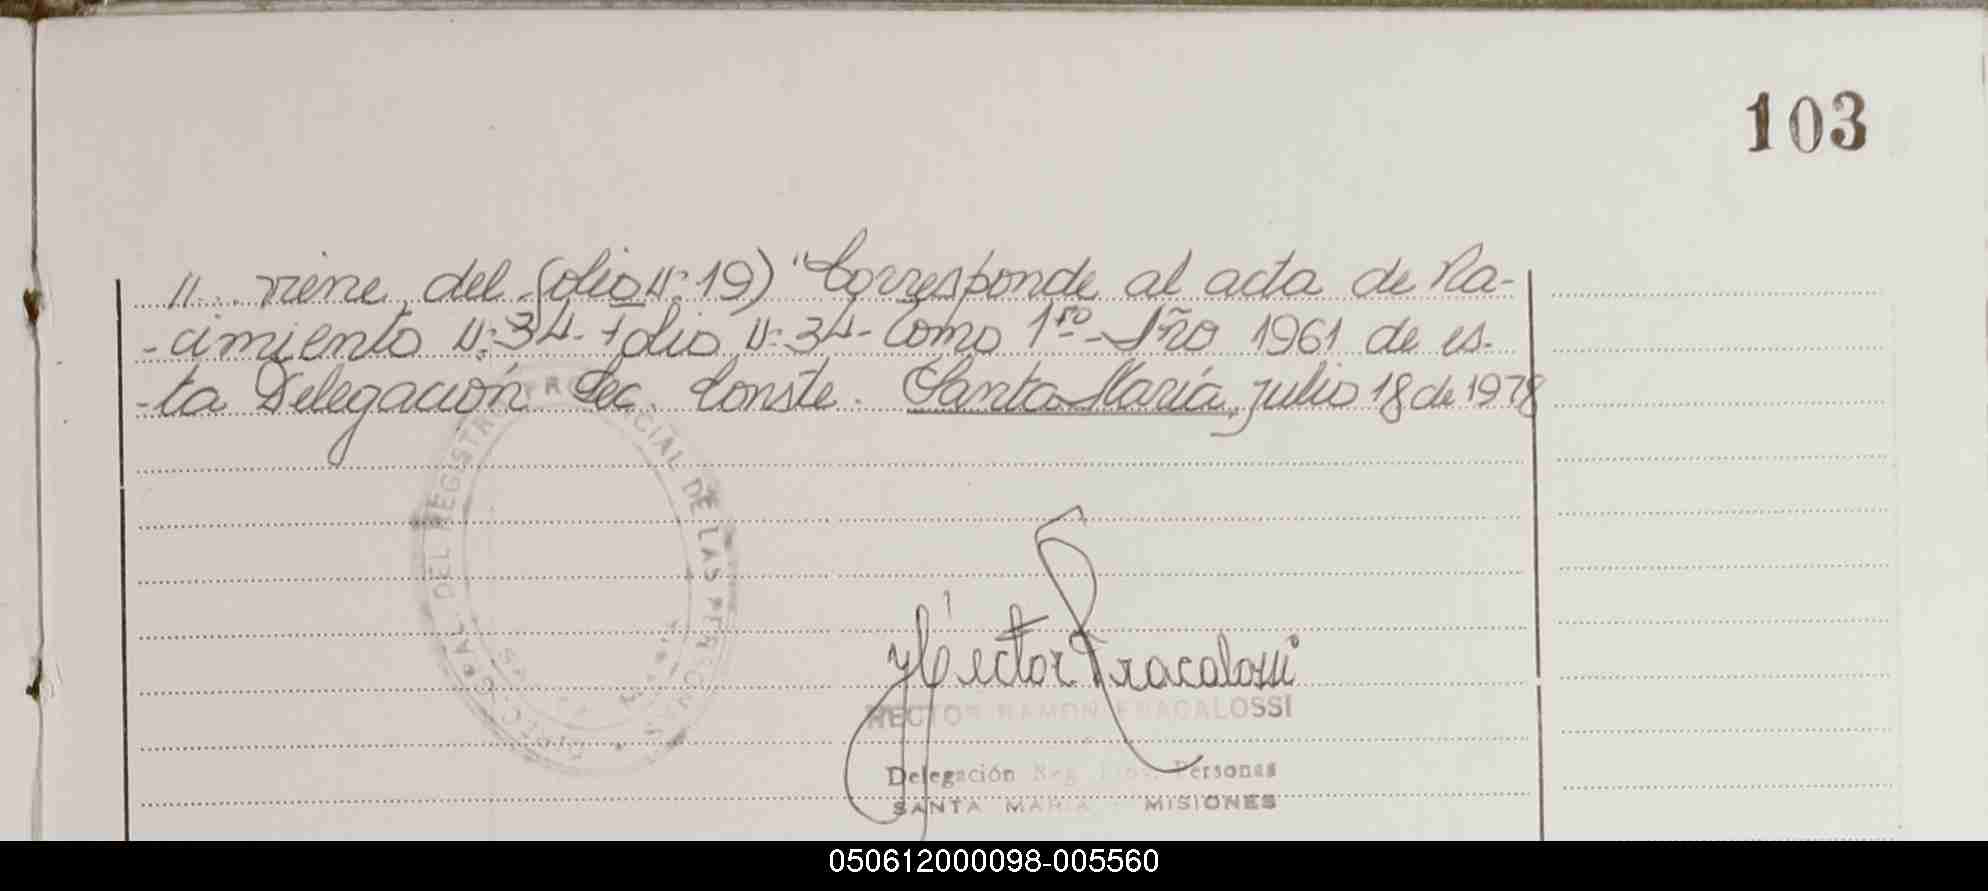 103
//.. viene del folio N: 19) "Corresponde al acta de Na-
-cimiento N: 34- folio N: 34- Tomo 1ro- Año 1961 de es-
-ta Delegación Sec. Conste. Santa María, julio 18 de 1978
DEL REGISTRO PROVINCIAL DE LAS PERSONAS
Héctor Fracalossi
HECTOR RAMON FRACALOSSI
Delegación Reg. Prov. Personas
SANTA MARIA - MISIONES
050612000098-005560